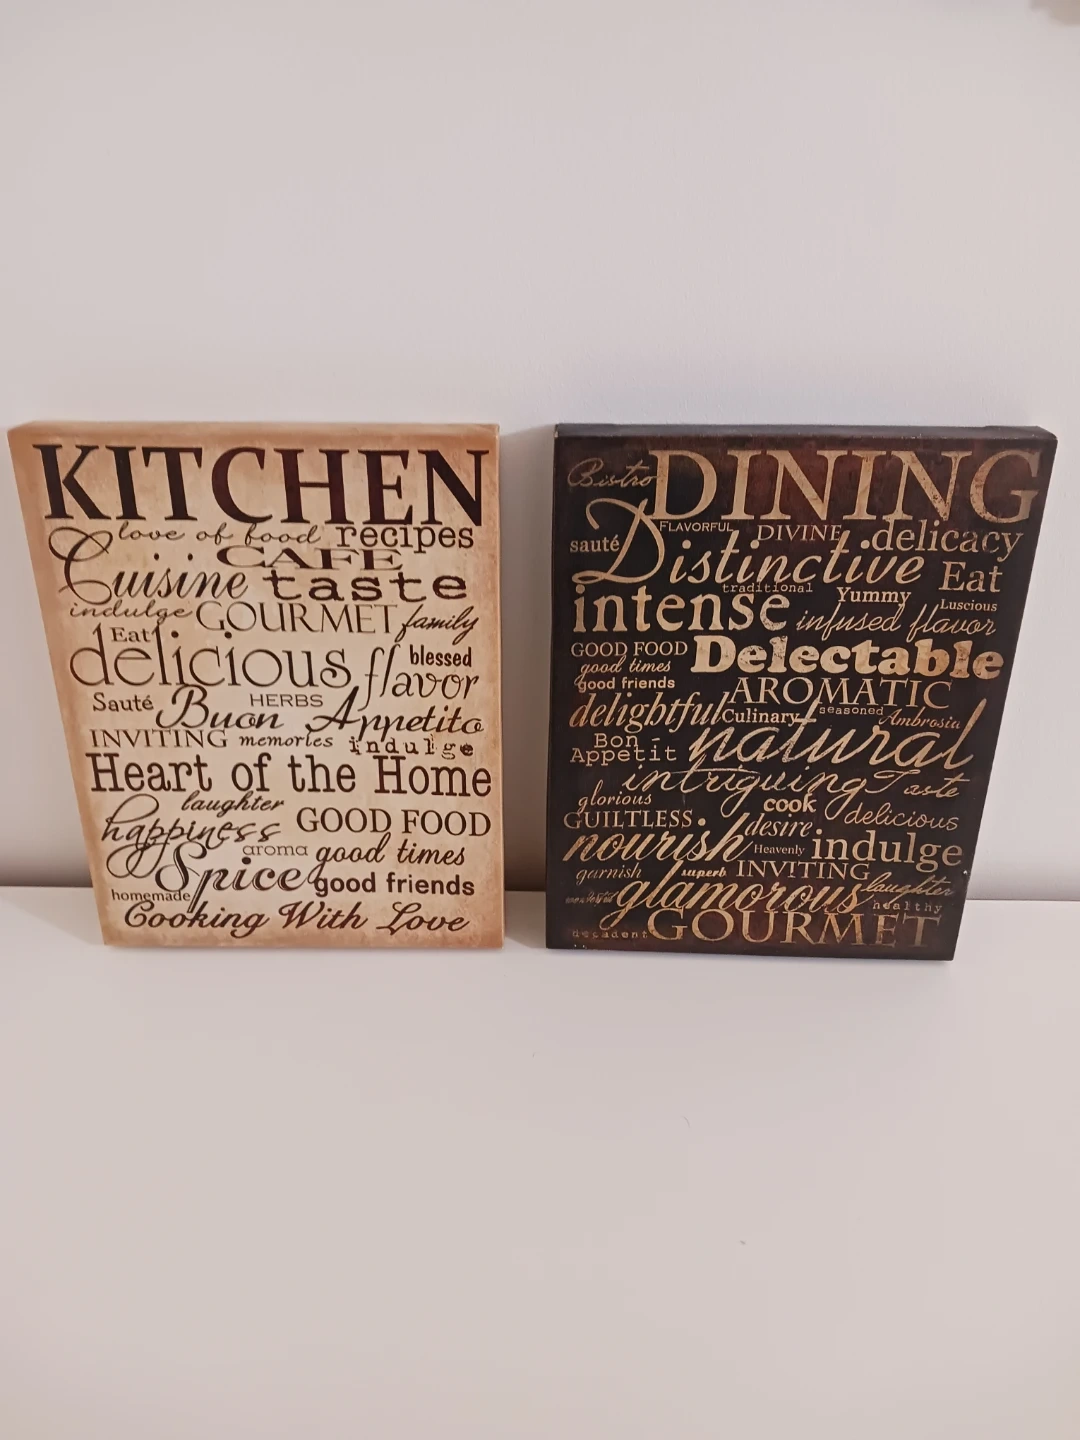 KITCHEN
love of food recipes
CAFE
Cuisine taste
indulge GOURMET family
Eat
delicious flavor blessed
Sauté HERBS
Buon Appetito
INVITING memories indulge
Heart of the Home
laughter
happiness GOOD FOOD
aroma good times
Spice good friends
homemade
Cooking With Love
Bistro DINING
FLAVORFUL DIVINE delicacy
sauté Distinctive Eat
traditional Yummy Luscious
intense infused flavor
GOOD FOOD Delectable
good times
good friends AROMATIC
delightful Culinary seasoned Ambrosia
Bon Appetit natural
intriguing Taste
glorious cook delicious
GUILTLESS desire
nourish Heavenly indulge
garnish superb INVITING
glamorous laughter
healthy
decadent GOURMET